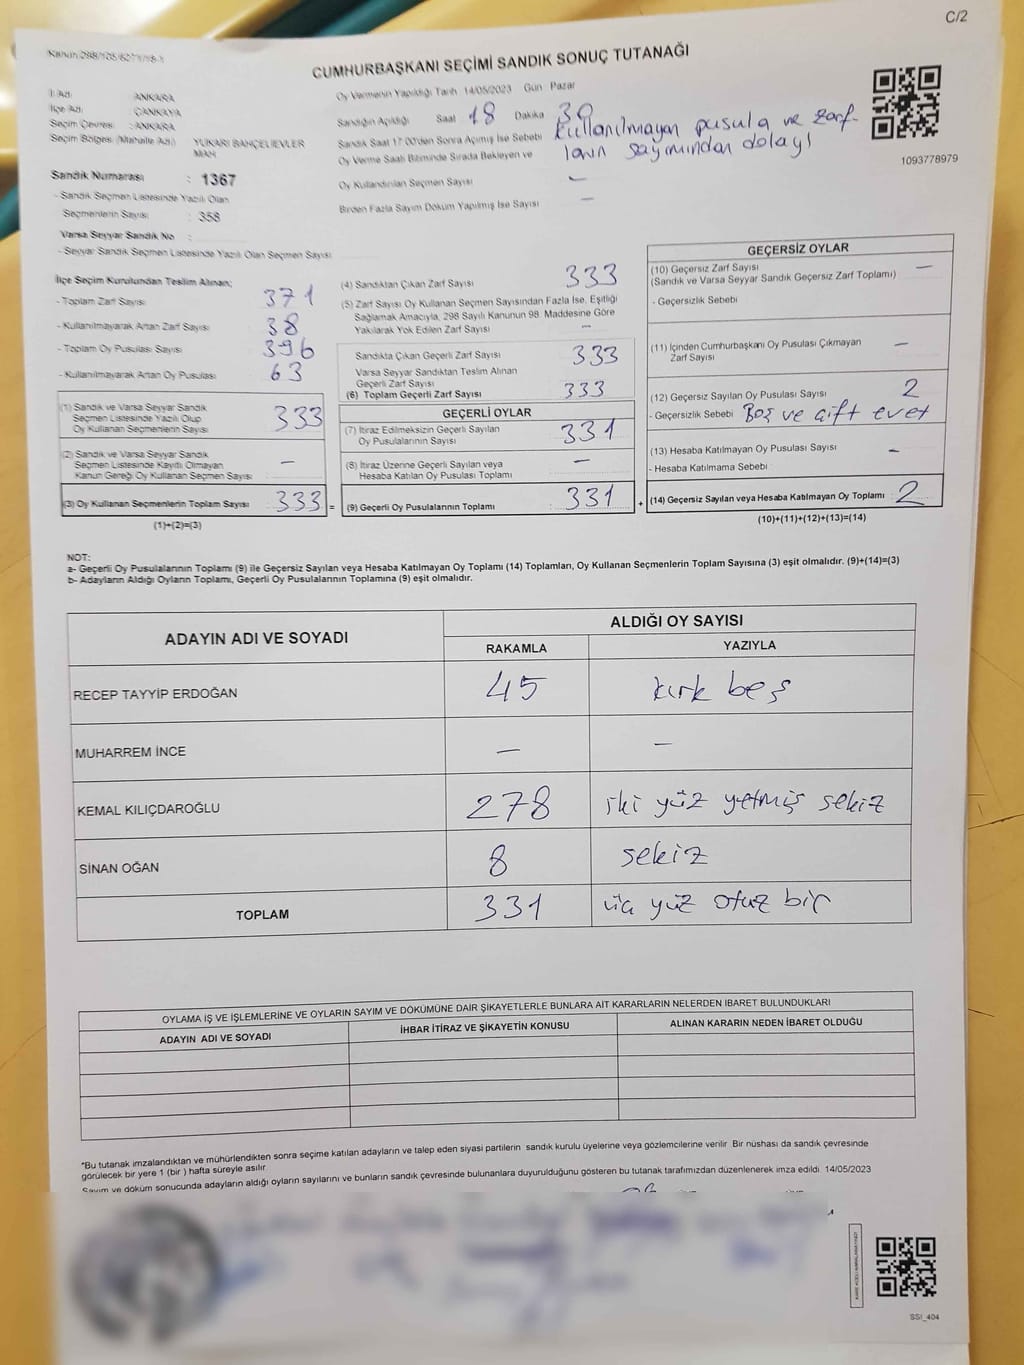 C/2
CUMHURBAŞKANI SEÇİMİ SANDIK SONUÇ TUTANAĞI
İl Adı : ANKARA
İlçe Adı : ÇANKAYA
Seçim Çevresi : ANKARA
Seçim Bölgesi (Mahalle Adı) : YUKARI BAHÇELİEVLER MAH.
Sandık Numarası : 1367
- Sandık Seçmen Listesinde Yazılı Olan
Seçmenlerin Sayısı : 358
Varsa Seyyar Sandık No :
- Seyyar Sandık Seçmen Listesinde Yazılı Olan Seçmen Sayısı :
Oy Vermenin Yapıldığı Tarih 14/05/2023 Gün Pazar
Sandığın Açıldığı Saat 18 Dakika 30
Sandık Saat 17.00'den Sonra Açılmış İse Sebebi Kullanılmayan pusula ve zarf-
ların sayımından dolayı
Oy Verme Saati Bitiminde Sırada Bekleyen ve
Oy Kullandırılan Seçmen Sayısı —
Birden Fazla Sayım Döküm Yapılmış İse Sayısı —
1093778979
İlçe Seçim Kurulundan Teslim Alınan;
- Toplam Zarf Sayısı 371
- Kullanılmayarak Artan Zarf Sayısı 38
- Toplam Oy Pusulası Sayısı 396
- Kullanılmayarak Artan Oy Pusulası 63
(1) Sandık ve Varsa Seyyar Sandık
Seçmen Listesinde Yazılı Olup
Oy Kullanan Seçmenlerin Sayısı 333
(2) Sandık ve Varsa Seyyar Sandık
Seçmen Listesinde Kayıtlı Olmayan
Kanun Gereği Oy Kullanan Seçmen Sayısı : —
(3) Oy Kullanan Seçmenlerin Toplam Sayısı : 333 =
(1)+(2)=(3)
(4) Sandıktan Çıkan Zarf Sayısı 333
(5) Zarf Sayısı Oy Kullanan Seçmen Sayısından Fazla İse, Eşitliği
Sağlamak Amacıyla, 298 Sayılı Kanunun 98. Maddesine Göre
Yakılarak Yok Edilen Zarf Sayısı —
Sandıkta Çıkan Geçerli Zarf Sayısı 333
Varsa Seyyar Sandıktan Teslim Alınan
Geçerli Zarf Sayısı
(6) Toplam Geçerli Zarf Sayısı 333
GEÇERLİ OYLAR
(7) İtiraz Edilmeksizin Geçerli Sayılan
Oy Pusulalarının Sayısı 331
(8) İtiraz Üzerine Geçerli Sayılan veya
Hesaba Katılan Oy Pusulası Toplamı —
(9) Geçerli Oy Pusulalarının Toplamı : 331 +
GEÇERSİZ OYLAR
(10) Geçersiz Zarf Sayısı —
(Sandık ve Varsa Seyyar Sandık Geçersiz Zarf Toplamı)
- Geçersizlik Sebebi
(11) İçinden Cumhurbaşkanı Oy Pusulası Çıkmayan
Zarf Sayısı —
(12) Geçersiz Sayılan Oy Pusulası Sayısı 2
- Geçersizlik Sebebi Boş ve çift evet
(13) Hesaba Katılmayan Oy Pusulası Sayısı —
- Hesaba Katılmama Sebebi
(14) Geçersiz Sayılan veya Hesaba Katılmayan Oy Toplamı : 2
(10)+(11)+(12)+(13)=(14)
NOT:
a- Geçerli Oy Pusulalarının Toplamı (9) ile Geçersiz Sayılan veya Hesaba Katılmayan Oy Toplamı (14) Toplamları, Oy Kullanan Seçmenlerin Toplam Sayısına (3) eşit olmalıdır. (9)+(14)=(3)
b- Adayların Aldığı Oyların Toplamı, Geçerli Oy Pusulalarının Toplamına (9) eşit olmalıdır.
ADAYIN ADI VE SOYADI ALDIĞI OY SAYISI
RAKAMLA YAZIYLA
RECEP TAYYİP ERDOĞAN 45 kırk beş
MUHARREM İNCE — —
KEMAL KILIÇDAROĞLU 278 iki yüz yetmiş sekiz
SİNAN OĞAN 8 sekiz
TOPLAM 331 üç yüz otuz bir
OYLAMA İŞ VE İŞLEMLERİNE VE OYLARIN SAYIM VE DÖKÜMÜNE DAİR ŞİKAYETLERLE BUNLARA AİT KARARLARIN NELERDEN İBARET BULUNDUKLARI
ADAYIN ADI VE SOYADI İHBAR İTİRAZ VE ŞİKAYETİN KONUSU ALINAN KARARIN NEDEN İBARET OLDUĞU
*Bu tutanak imzalandıktan ve mühürlendikten sonra seçime katılan adayların ve talep eden siyasi partilerin sandık kurulu üyelerine veya gözlemcilerine verilir. Bir nüshası da sandık çevresinde
görülecek bir yere 1 (bir ) hafta süreyle asılır.
Sayım ve döküm sonucunda adayların aldığı oyların sayılarını ve bunların sandık çevresinde bulunanlara duyurulduğunu gösteren bu tutanak tarafımızdan düzenlenerek imza edildi. 14/05/2023
SSI_404